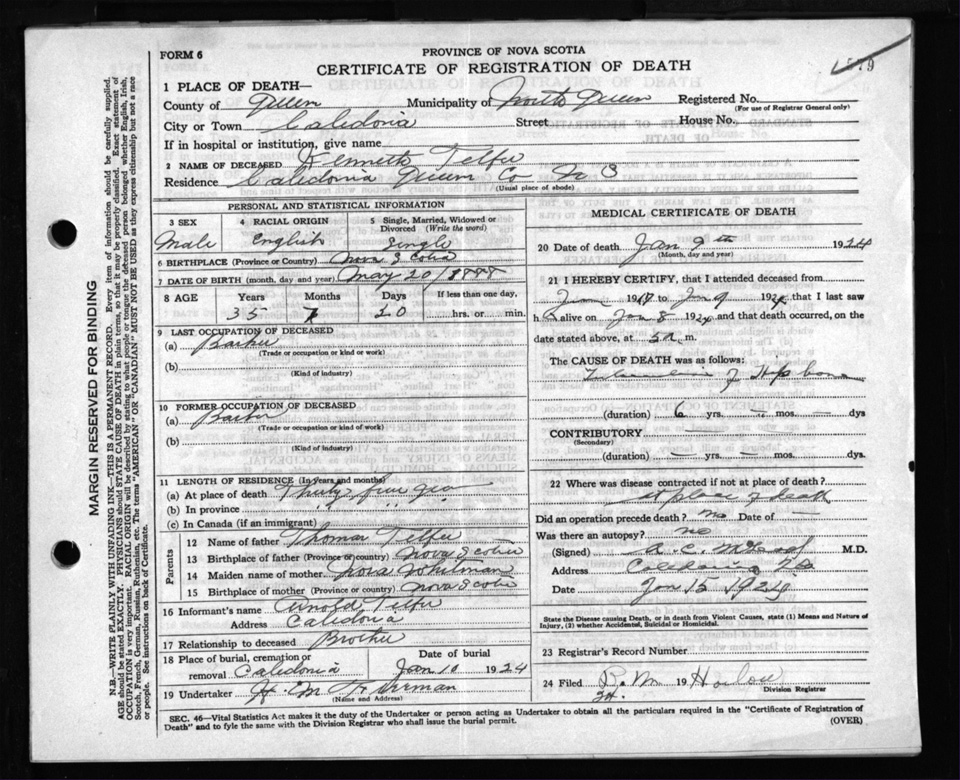 FORM 6
PROVINCE OF NOVA SCOTIA
CERTIFICATE OF REGISTRATION OF DEATH
579
1 PLACE OF DEATH—
County of Queen Municipality of North Queen Registered No.
(For use of Registrar General only)
City or Town Caledonia Street House No.
If in hospital or institution, give name
2 NAME OF DECEASED Kenneth Telfer
Residence Caledonia Queen Co N S
(Usual place of abode)
PERSONAL AND STATISTICAL INFORMATION
3 SEX 4 RACIAL ORIGIN 5 Single, Married, Widowed or Divorced (Write the word)
Male English Single
6 BIRTHPLACE (Province or Country) Nova Scotia
7 DATE OF BIRTH (month, day and year) May 20/1888
8 AGE Years Months Days If less than one day,
35 7 20 hrs. or min.
9 LAST OCCUPATION OF DECEASED
(a) Barber
(Trade or occupation or kind or work)
(b)
(Kind of industry)
10 FORMER OCCUPATION OF DECEASED
(a) Barber
(Trade or occupation or kind or work)
(b)
(Kind of industry)
11 LENGTH OF RESIDENCE (In years and months)
(a) At place of death Thirty five
(b) In province " "
(c) In Canada (if an immigrant)
Parents
12 Name of father Thomas Telfer
13 Birthplace of father (Province or country) Nova Scotia
14 Maiden name of mother Whitman
15 Birthplace of mother (Province or country) Nova Scotia
16 Informant's name Arnold Telfer
Address Caledonia
17 Relationship to deceased Brother
18 Place of burial, cremation or removal Caledonia Date of burial Jan 10 1924
19 Undertaker H. M
(Name and Address)
MEDICAL CERTIFICATE OF DEATH
20 Date of death Jan 9th 1924
(Month, day and year)
21 I HEREBY CERTIFY, that I attended deceased from
1917 to Jan 9 1924 that I last saw
h alive on Jan 8 1924 and that death occurred, on the
date stated above, at 5 a. m.
The CAUSE OF DEATH was as follows:
Tuberculosis of Hip bone
(duration) 6 yrs. — mos. — dys
CONTRIBUTORY —
(Secondary)
(duration) — yrs. — mos. — dys.
22 Where was disease contracted if not at place of death?
at place of death
Did an operation precede death? no Date of —
Was there an autopsy? no
(Signed) M.D.
Address Caledonia NS
Date Jan 15 1924
State the Disease causing Death, or in death from Violent Causes, state (1) Means and Nature of Injury, (2) whether Accidental, Suicidal or Homicidal.
23 Registrar's Record Number
24 Filed 19
Division Registrar
SEC. 46—Vital Statistics Act makes it the duty of the Undertaker or person acting as Undertaker to obtain all the particulars required in the "Certificate of Registration of Death" and to fyle the same with the Division Registrar who shall issue the burial permit.
(OVER)
MARGIN RESERVED FOR BINDING
N.B.—WRITE PLAINLY WITH UNFADING INK.—THIS IS A PERMANENT RECORD. Every item of information should be carefully supplied.
AGE should be stated EXACTLY. PHYSICIANS should STATE CAUSE OF DEATH in plain terms, so that it may be properly classified. Exact statement of
OCCUPATION is very important. RACIAL ORIGIN will be described by stating to what people or tongue the deceased person belonged whether English, Irish,
Scotch, French, German, Russian, Ruthenian, etc. The terms "AMERICAN" OR "CANADIAN" MUST NOT BE USED as they express citizenship but not a race
or people. See instructions on back of Certificate.